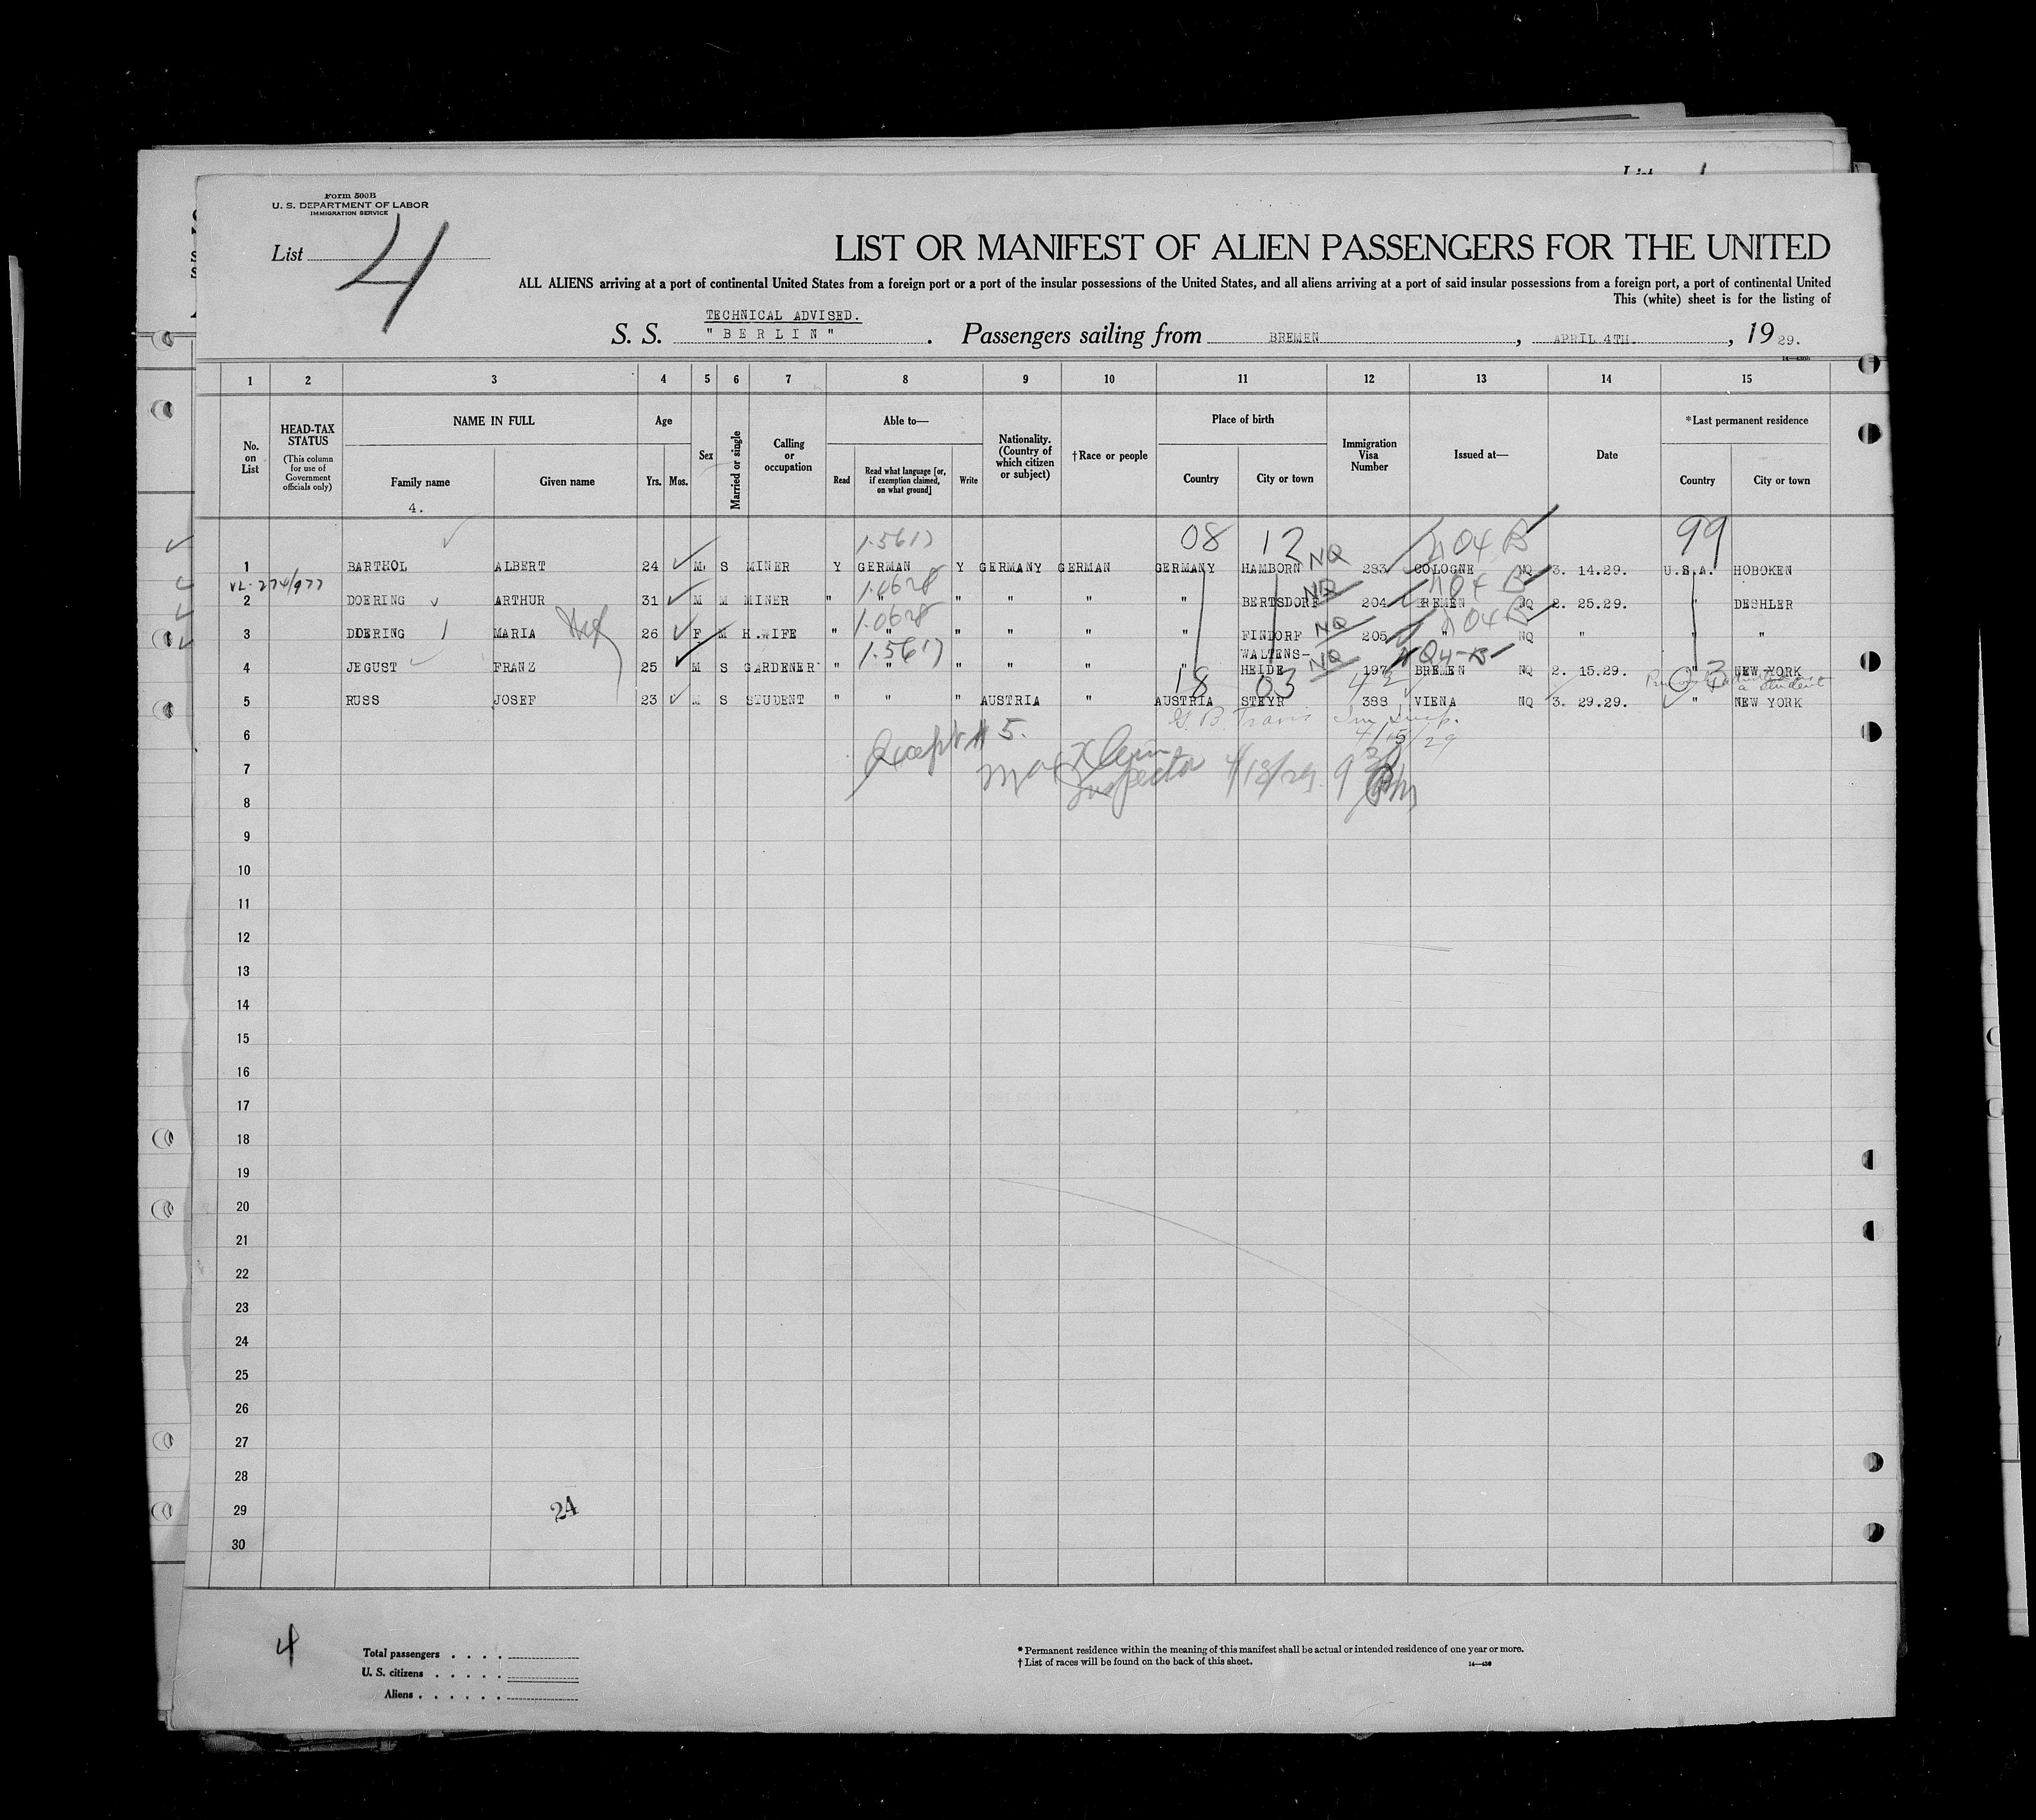 Form 500B
U. S. DEPARTMENT OF LABOR
IMMIGRATION SERVICE
List 4
LIST OR MANIFEST OF ALIEN PASSENGERS FOR THE UNITED
ALL ALIENS arriving at a port of continental United States from a foreign port or a port of the insular possessions of the United States, and all aliens arriving at a port of said insular possessions from a foreign port, a port of continental United
This (white) sheet is for the listing of
TECHNICAL ADVISED.
S. S. "BERLIN". Passengers sailing from BREMEN, APRIL 4TH., 1929.
1 2 3 4 5 6 7 8 9 10 11 12 13 14 15
No. on List
HEAD-TAX STATUS (This column for use of Government officials only)
NAME IN FULL Family name Given name
Age Yrs. Mos.
Sex
Married or single
Calling or occupation
Able to— Read Read what language [or, if exemption claimed, on what ground] Write
Nationality. (Country of which citizen or subject)
†Race or people
Place of birth Country City or town
Immigration Visa Number
Issued at—
Date
*Last permanent residence Country City or town
4.
1.5617 08 12 NQ 404 B 99
1 BARTHOL ALBERT 24 M S MINER Y GERMAN Y GERMANY GERMAN GERMANY HAMBORN 283 COLOGNE NQ 3. 14.29. U.S.A. HOBOKEN
VL-274/977 1.0628 NQ 404 B
2 DOERING ARTHUR 31 M M MINER " " " " " " BERTSDORF 204 BREMEN NQ 2. 25.29. " DESHLER
1.0628 NQ 404 B
3 DOERING MARIA 26 F M H.WIFE " " " " " " FINDORF 205 " NQ " " "
1.5617 WALTENS- NQ
4 JEGUST FRANZ 25 M S GARDENER " " " " " " HEIDE 197 BREMEN NQ 2. 15.29. " NEW YORK
18 03 a student
5 RUSS JOSEF 23 M S STUDENT " " " AUSTRIA " AUSTRIA STEYR 388 VIENA NQ 3. 29.29. " NEW YORK
G. B. Travis Im Insp.
4/15/29
6 Except # 5.
7 Max Klein Inspector 4/13/29
8
9
10
11
12
13
14
15
16
17
18
19
20
21
22
23
24
25
26
27
28
29 24
30
4
Total passengers
U. S. citizens
Aliens
* Permanent residence within the meaning of this manifest shall be actual or intended residence of one year or more.
† List of races will be found on the back of this sheet.
14—430